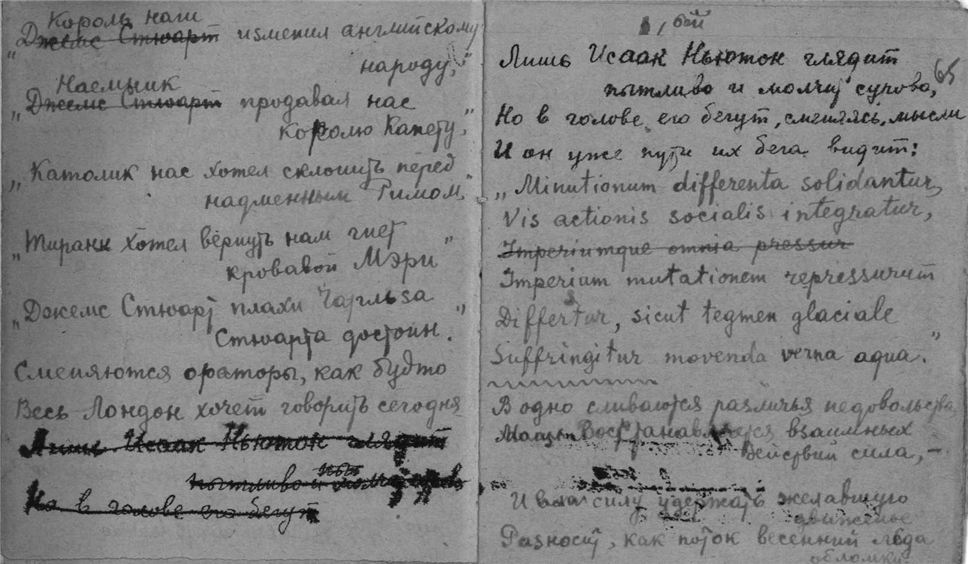 Король наш
„Джемс Стюарт изменил английскому
народу,“
Наемник
„Джемс Стюарт продавал нас
королю Капету,“
„Католик нас хотел склонить перед
надменным Римом,“
„Тиранн хотел вернуть нам гнет
кровавой Мэри“
„Джемс Стюарт плахи Чарльза
Стюарта достоин.“
Сменяются ораторы, как будто
Весь Лондон хочет говорить сегодня
Лишь Исаак Ньютон глядит
пытливо и
На в голове его бегут
65
Лишь Исаак Ньютон глядит
пытливо и молчит сурово,
Но в голове его бегут, сменяясь, мысли
И он уже пути их бега видит:
„Minutionum differenta solidantur,
Vis actionis socialis integratur,
Imperiumque omnia pressur
Imperium mutationem repressurum
Differtur, sicut tegmen glaciale
Suffringitur movenda verna aqua.“
В одно сливаются различья недовольства,
Восстанавляется взаимных
Действий сила,—
И силу удержать желавшую
движенье
Разносит, как поток весенний льда
обломки